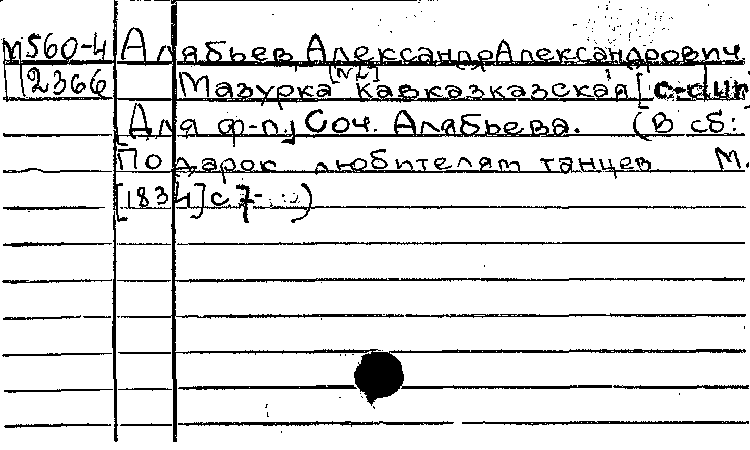 м560-4 Алябьев Александр Александрович
12366 Мазурка [№2] кавказказская [c-dur
[Для ф-п.] Соч. Алябьева. (В сб:
Подарок любителям танцев М.
[1834] с 7- )